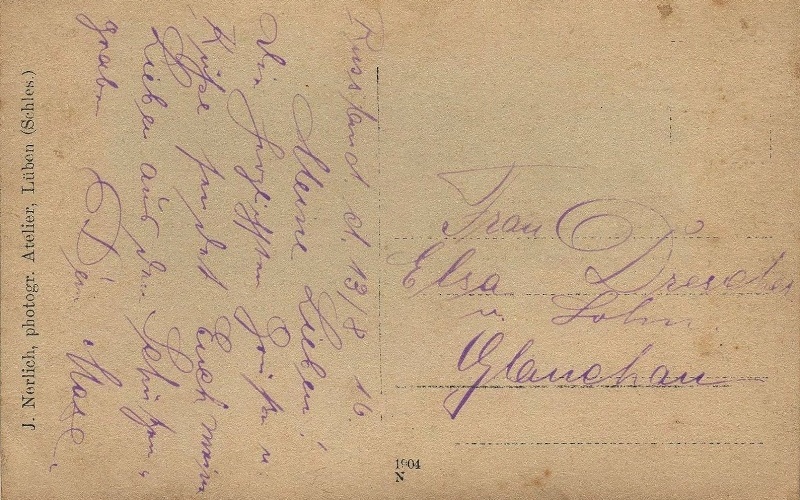 Russland. d. 13/8 16.
Meine Lieben!
Die herzlichsten Grüße u.
Küße sendet Euch meine
Lieben aus dem Schützen-
graben Dein Max.
Frau
Elsa
u. Sohn.
Glauchau
J. Norlich, photogr. Atelier, Lüben (Schles.)
1904
N